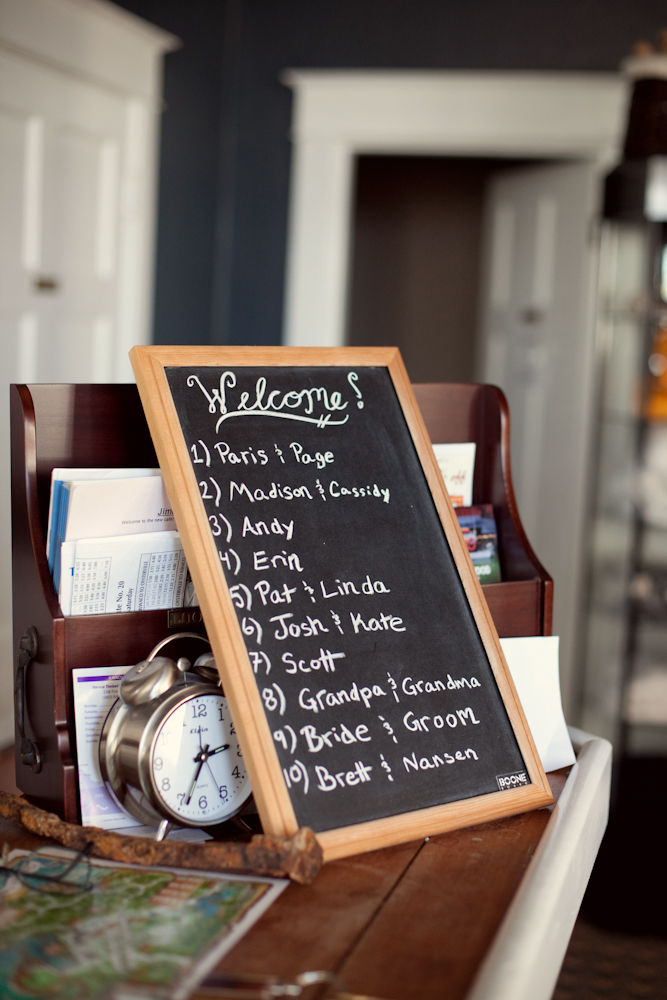 Welcome!
1) Paris & Page
2) Madison & Cassidy
3) Andy
4) Erin
5) Pat & Linda
6) Josh & Kate
7) Scott
8) Grandpa & Grandma
9) Bride & Groom
10) Brett & Nansen
BOONE
Elgin
12
1
2
3
4
5
6
7
8
9
10
11